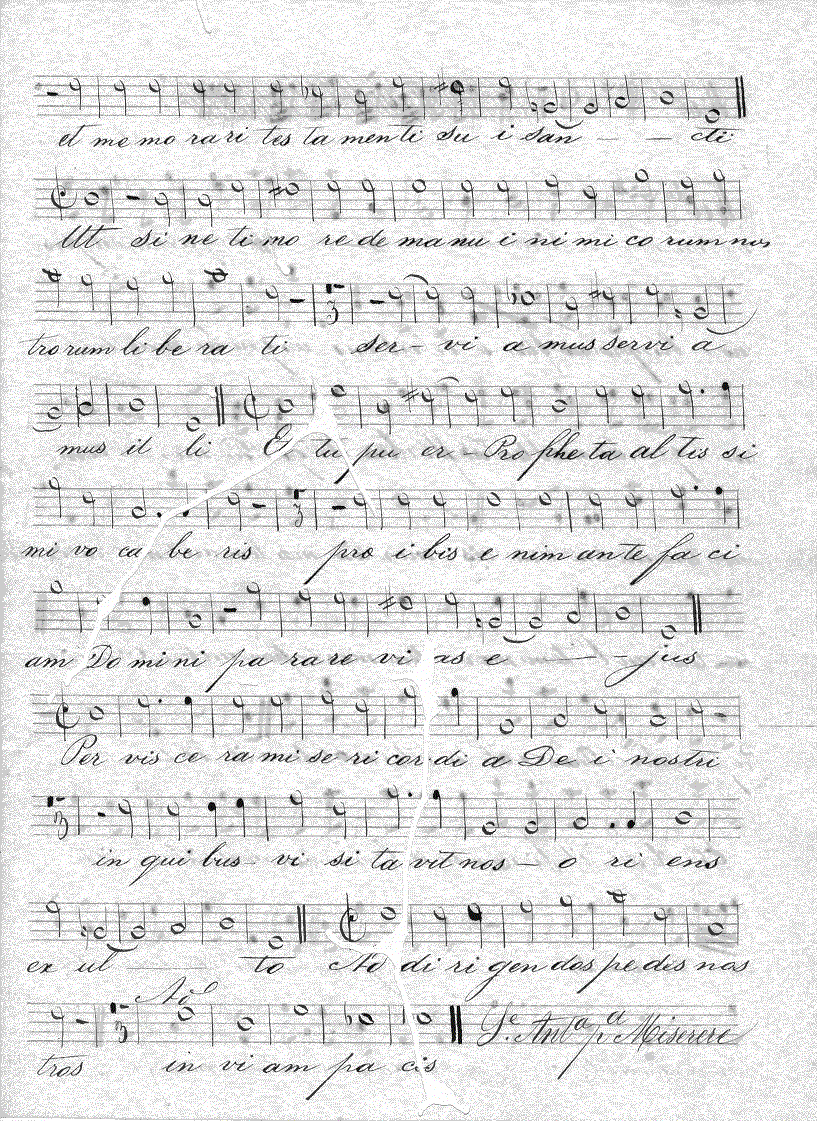 et me mo ra ri tes ta men ti su i san - - cti
Ut si ne ti mo re de ma nu i ni mi co rum nos
tro rum li be ra ti ser - vi a mus ser vi a
mus il li Et tu pu er - Pro phe ta al tis si
mi vo ca be ris pro i bis e nim an te fa ci
am Do mi ni pa ra re vi as e - - jus
Per vis ce ra mi se ri cor di a De i nostri
in qui bus - vi si ta vit nos - o ri ens
ex al to Ad di ri gen dos pe des nos
Ad
tros in vi am pa cis Miserere